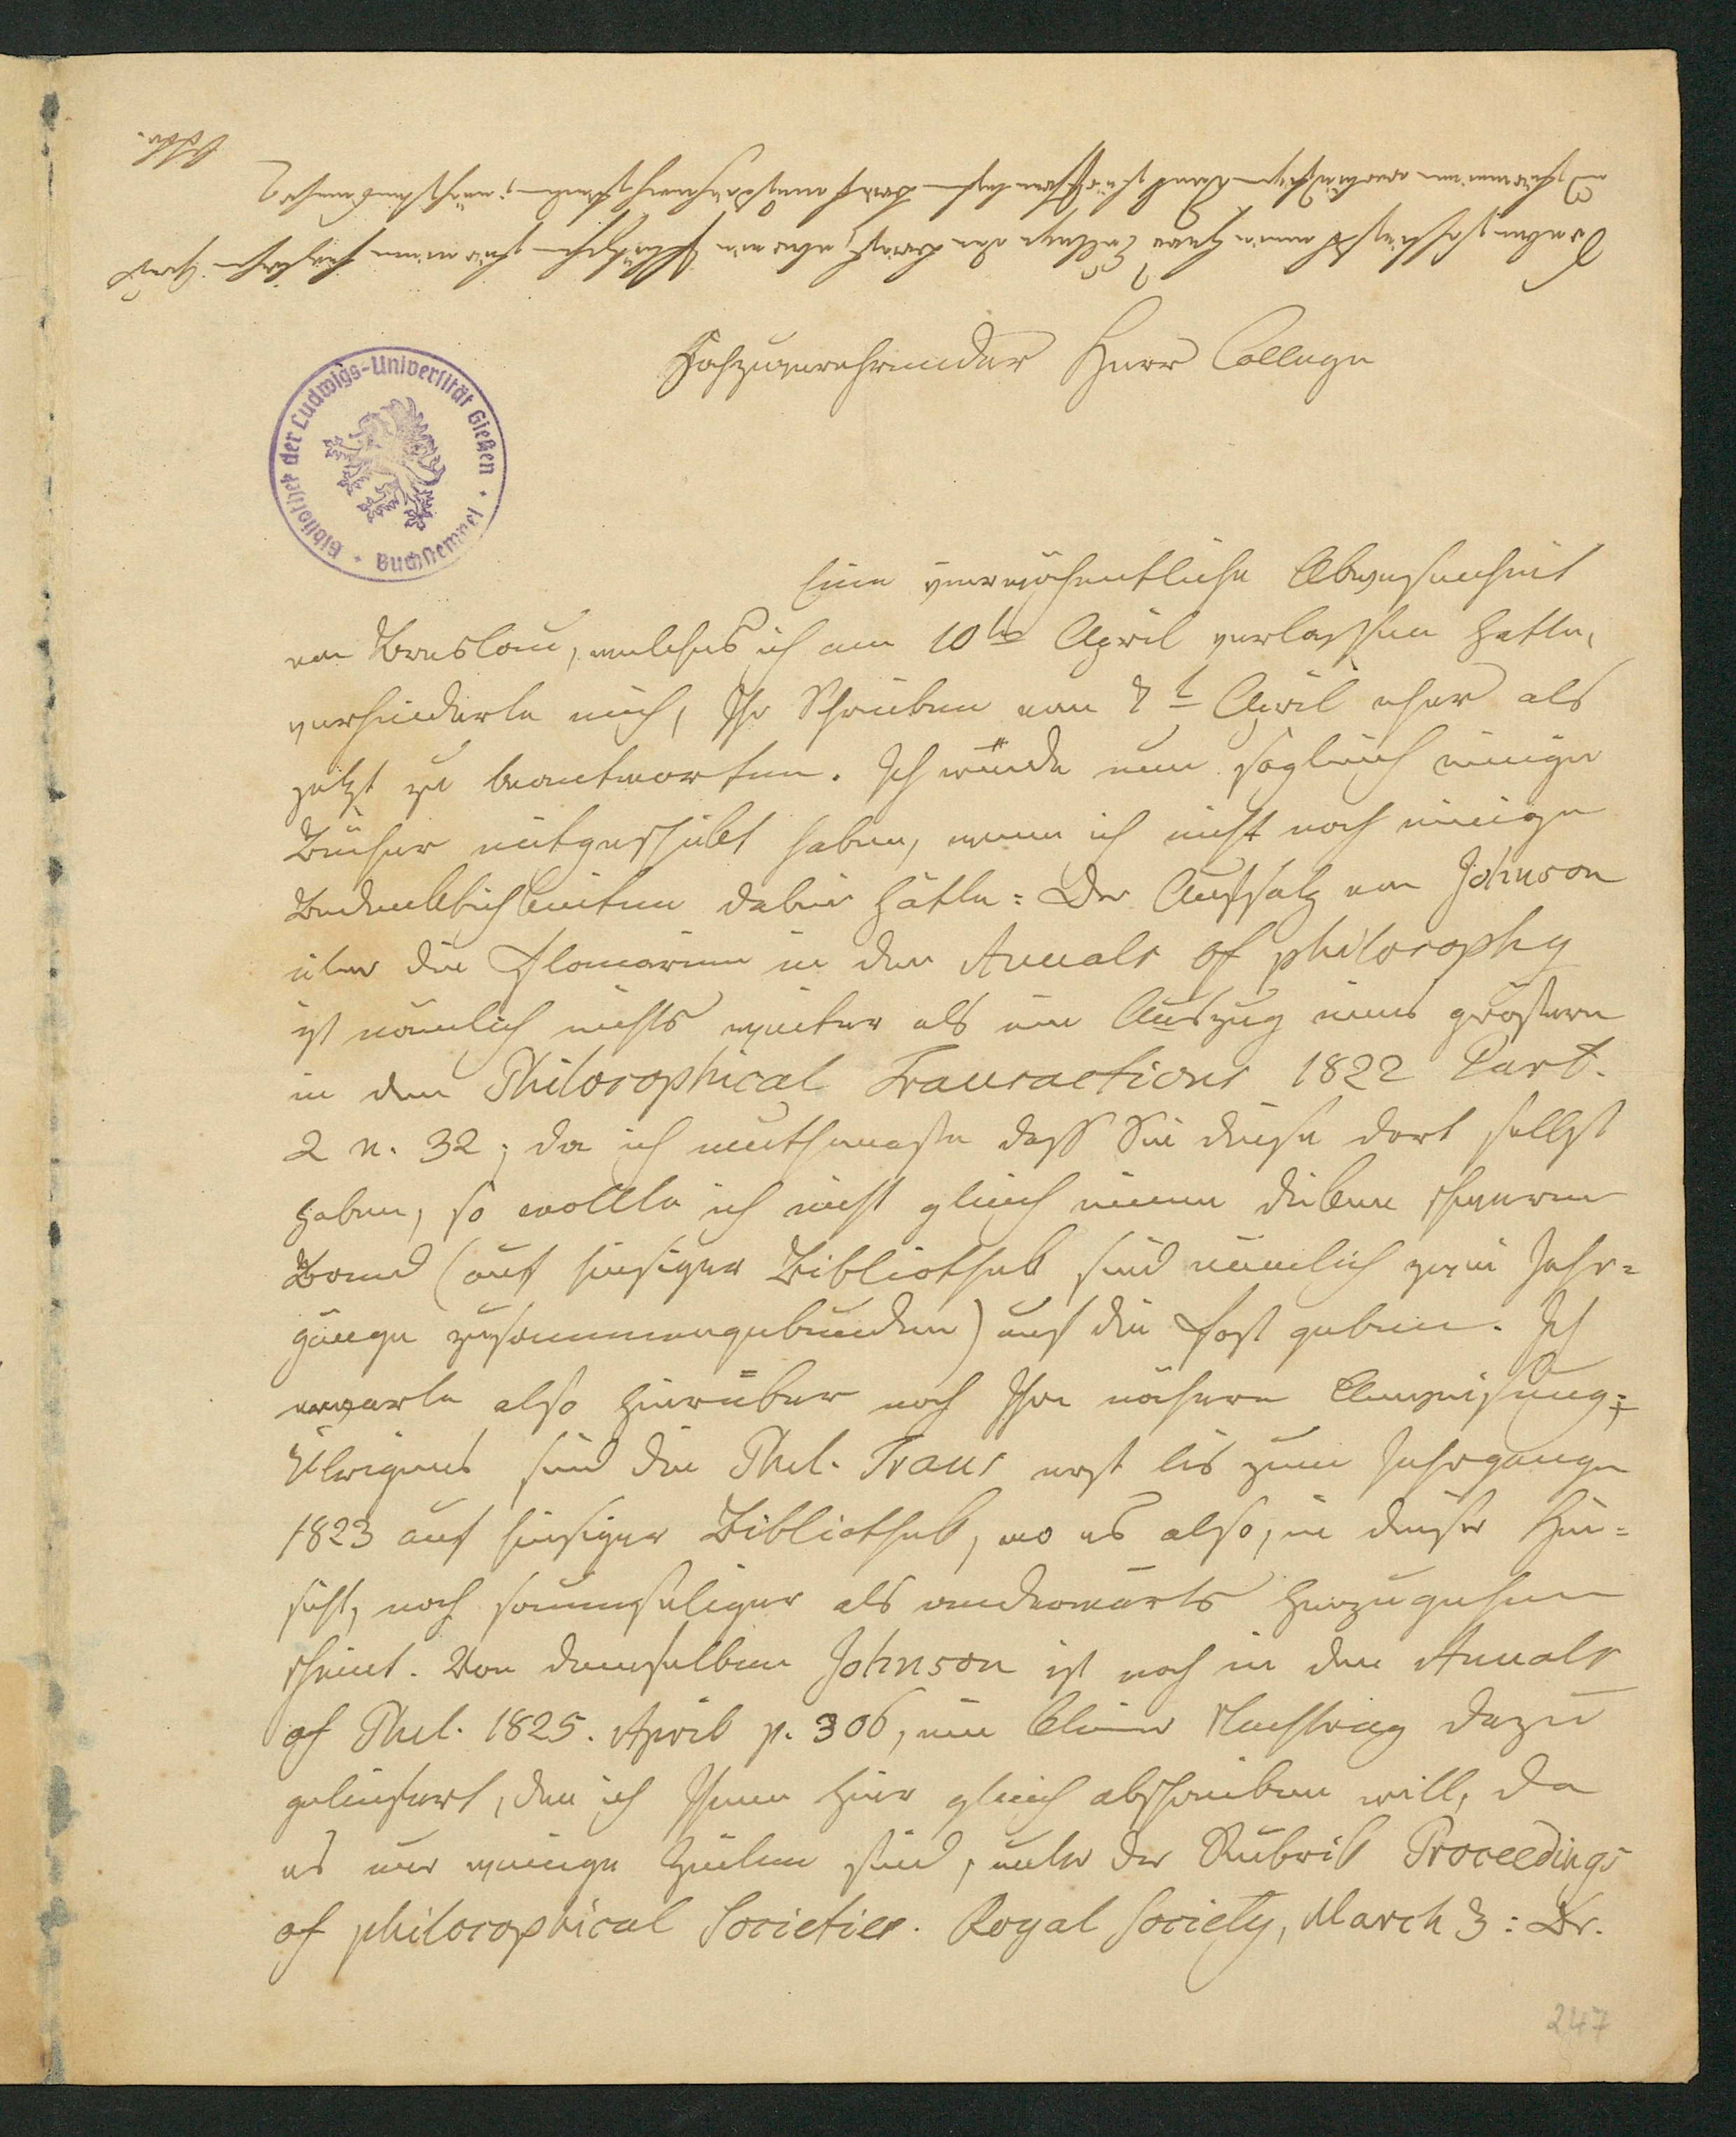 Hochzuverehrender Herr College
Bibliothek der Ludwigs-Universität Gießen
Buchstempel
Eine vierwöchentliche Abwesenheit
von Breslau, welches ich am 10ten April verlassen hatte,
verhinderte mich, Ihr Schreiben vom 7t April eher als
jetzt zu beantworten. Ich würde nun sogleich einige
Bücher mitgeschickt haben, wenn ich nicht noch einige
Bedenklichkeiten dabei hätte: Der Aufsatz von Johnson
über die Planarien in den Annals of philosophy
ist nämlich nichts weiter als ein Auszug eines größern
in den Philosophical Transactions 1822 Part.
2 n. 32; da ich muthmaße daß Sie diese dort selbst
haben, so wollte ich nicht gleich einen dicken schweren
Band (auf hiesiger Bibliothek sind nämlich zwei Jahr=
gänge zusammengebunden) auf die Post geben. Ich
erwarte also hierüber noch Ihre nähere Anweisung;
Übrigens sind die Phil. Trans erst bis zum Jahrgange
1823 auf hiesiger Bibliothek, wo es also, in dieser Hin=
sicht, noch saumseliger als anderwärts herzugehen
scheint. Von demselben Johnson ist noch in den Annals
of Phil. 1825. April p. 306, ein kleiner Nachtrag dazu
geliefert, den ich Ihnen hier gleich abschreiben will, da
es nur wenige Zeilen sind, unter der Rubrik Proceedings
of philosophical Societies. Royal Society, March 3: Dr.
247